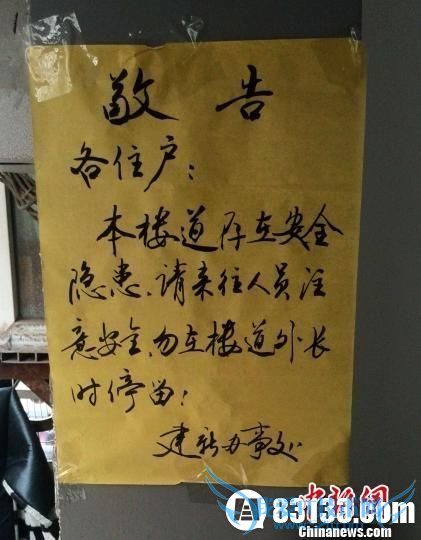 敬告
各住户：
本楼道存在安全
隐患、请来往人员注
意安全、勿在楼道外长
时停留：
建新办事处
中新网
83133.com
Chinanews.com